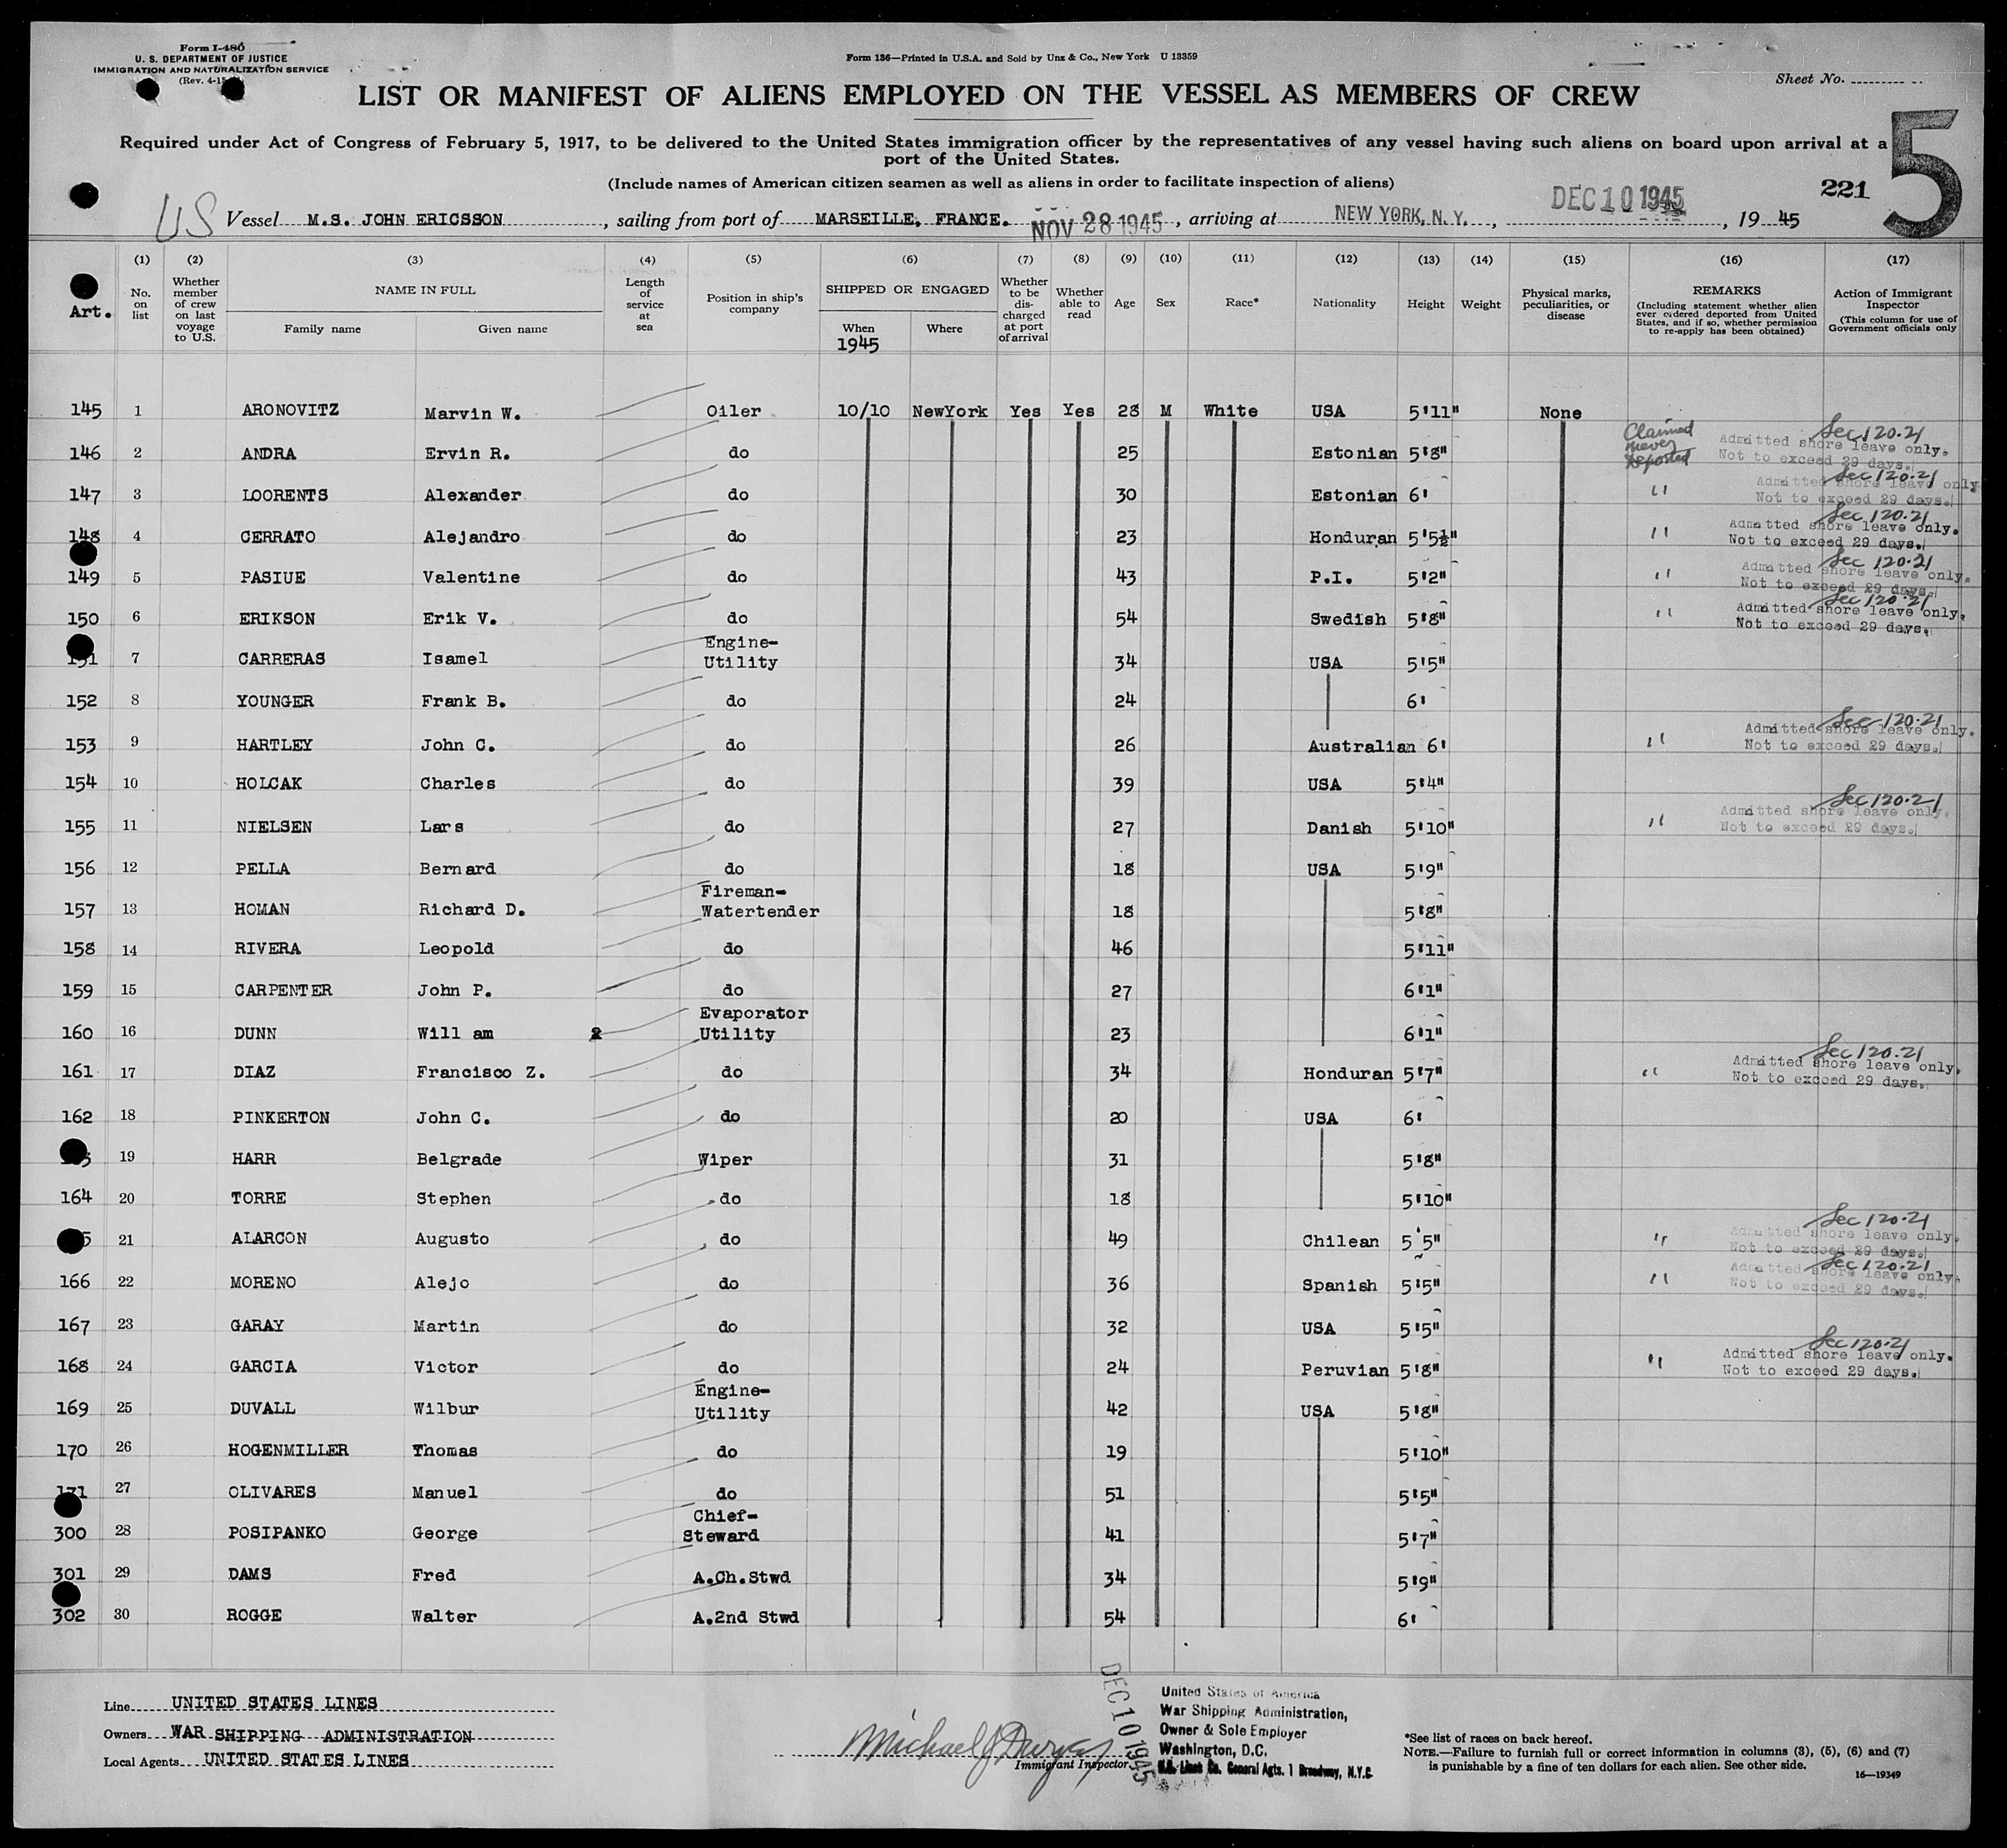 Form I-480
U. S. DEPARTMENT OF JUSTICE
IMMIGRATION AND NATURALIZATION SERVICE
(Rev. 4-1
Form 136—Printed in U.S.A. and Sold by Unz & Co., New York U 13359
Sheet No.
LIST OR MANIFEST OF ALIENS EMPLOYED ON THE VESSEL AS MEMBERS OF CREW
5
Required under Act of Congress of February 5, 1917, to be delivered to the United States immigration officer by the representatives of any vessel having such aliens on board upon arrival at a
port of the United States.
(Include names of American citizen seamen as well as aliens in order to facilitate inspection of aliens)
221
US Vessel M.S. JOHN ERICSSON, sailing from port of MARSEILLE, FRANCE. NOV 28 1945, arriving at NEW YORK, N. Y., DEC 10 1945, 19 45
Art.
(1) No. on list
(2) Whether member of crew on last voyage to U.S.
(3) NAME IN FULL Family name Given name
(4) Length of service at sea
(5) Position in ship's company
(6) SHIPPED OR ENGAGED When 1945 Where
(7) Whether to be discharged at port of arrival
(8) Whether able to read
(9) Age
(10) Sex
(11) Race*
(12) Nationality
(13) Height
(14) Weight
(15) Physical marks, peculiarities, or disease
(16) REMARKS (Including statement whether alien ever ordered deported from United States, and if so, whether permission to re-apply has been obtained)
(17) Action of Immigrant Inspector (This column for use of Government officials only
145 1 ARONOVITZ Marvin W. Oiler 10/10 NewYork Yes Yes 28 M White USA 5'11" None
146 2 ANDRA Ervin R. do 25 Estonian 5'8" Claimed never Deported Sec 120.21 Admitted shore leave only. Not to exceed 29 days.
147 3 LOORENTS Alexander do 30 Estonian 6' " Sec 120.21 Admitted shore leave only Not to exceed 29 days.
148 4 CERRATO Alejandro do 23 Honduran 5'5½" " Sec 120.21 Admitted shore leave only. Not to exceed 29 days.
149 5 PASIUE Valentine do 43 P.I. 5'2" " Sec 120.21 Admitted shore leave only. Not to exceed 29 days.
150 6 ERIKSON Erik V. do 54 Swedish 5'8" " Sec 120.21 Admitted shore leave only. Not to exceed 29 days.
151 7 CARRERAS Isamel Engine-Utility 34 USA 5'5"
152 8 YOUNGER Frank B. do 24 6'
153 9 HARTLEY John C. do 26 Australian 6' " Sec 120.21 Admitted shore leave only. Not to exceed 29 days.
154 10 HOLCAK Charles do 39 USA 5'4"
155 11 NIELSEN Lars do 27 Danish 5'10" " Sec 120.21 Admitted shore leave only. Not to exceed 29 days.
156 12 PELLA Bernard do 18 USA 5'9"
157 13 HOMAN Richard D. Fireman-Watertender 18 5'8"
158 14 RIVERA Leopold do 46 5'11"
159 15 CARPENTER John P. do 27 6'1"
160 16 DUNN Will am Evaporator Utility 23 6'1"
161 17 DIAZ Francisco Z. do 34 Honduran 5'7" " Sec 120.21 Admitted shore leave only. Not to exceed 29 days.
162 18 PINKERTON John C. do 20 USA 6'
3 19 HARR Belgrade Wiper 31 5'8"
164 20 TORRE Stephen do 18 5'10"
5 21 ALARCON Augusto do 49 Chilean 5'5" " Sec 120.21 Admitted shore leave only. Not to exceed 29 days.
166 22 MORENO Alejo do 36 Spanish 5'5" " Sec 120.21 Admitted shore leave only. Not to exceed 29 days.
167 23 GARAY Martin do 32 USA 5'5"
168 24 GARCIA Victor do 24 Peruvian 5'8" " Sec 120.21 Admitted shore leave only. Not to exceed 29 days.
169 25 DUVALL Wilbur Engine-Utility 42 USA 5'8"
170 26 HOGENMILLER Thomas do 19 5'10"
171 27 OLIVARES Manuel do 51 5'5"
300 28 POSIPANKO George Chief-Steward 41 5'7"
301 29 DAMS Fred A.Ch.Stwd 34 5'9"
302 30 ROGGE Walter A.2nd Stwd 54 6'
Line UNITED STATES LINES
Owners WAR SHIPPING ADMINISTRATION
Local Agents UNITED STATES LINES
Michael J
Immigrant Inspector
DEC 10 1945
United States of America
War Shipping Administration,
Owner & Sole Employer
Washington, D.C.
U.S. Lines Co. General Agts. 1 Broadway, N.Y.C.
*See list of races on back hereof.
NOTE.—Failure to furnish full or correct information in columns (3), (5), (6) and (7)
is punishable by a fine of ten dollars for each alien. See other side.
16—19349